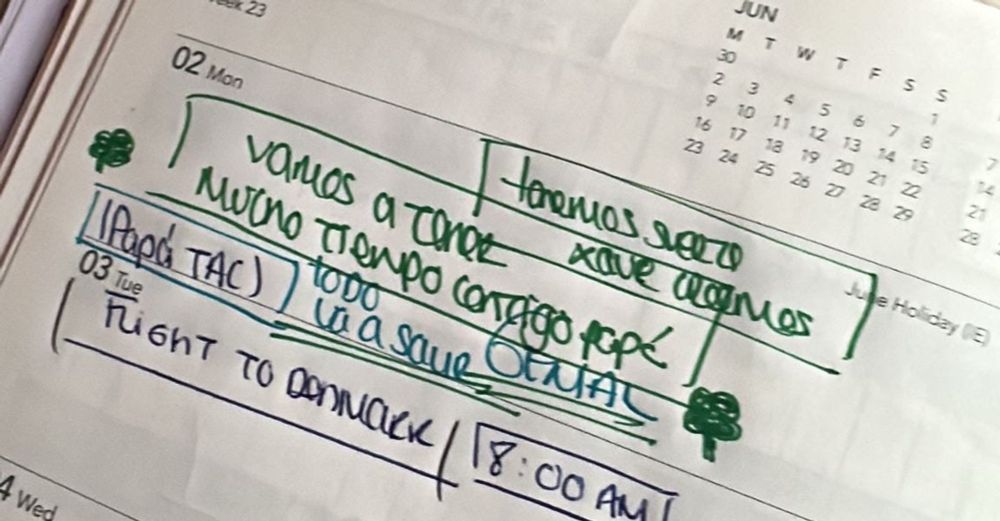 Week 23
JUN
M T W T F S S
30 1
2 3 4 5 6 7 8
9 10 11 12 13 14 15
16 17 18 19 20 21 22
23 24 25 26 27 28 29
7
14
21
28
02 Mon
June Holiday (IE)
tenemos suerte
xave
vamos a tener
mucho tiempo contigo papá
(Papá TAC)
todo
va a salir GENIAL
03 Tue
FLIGHT TO DANMARK
8:00 AM
4 Wed